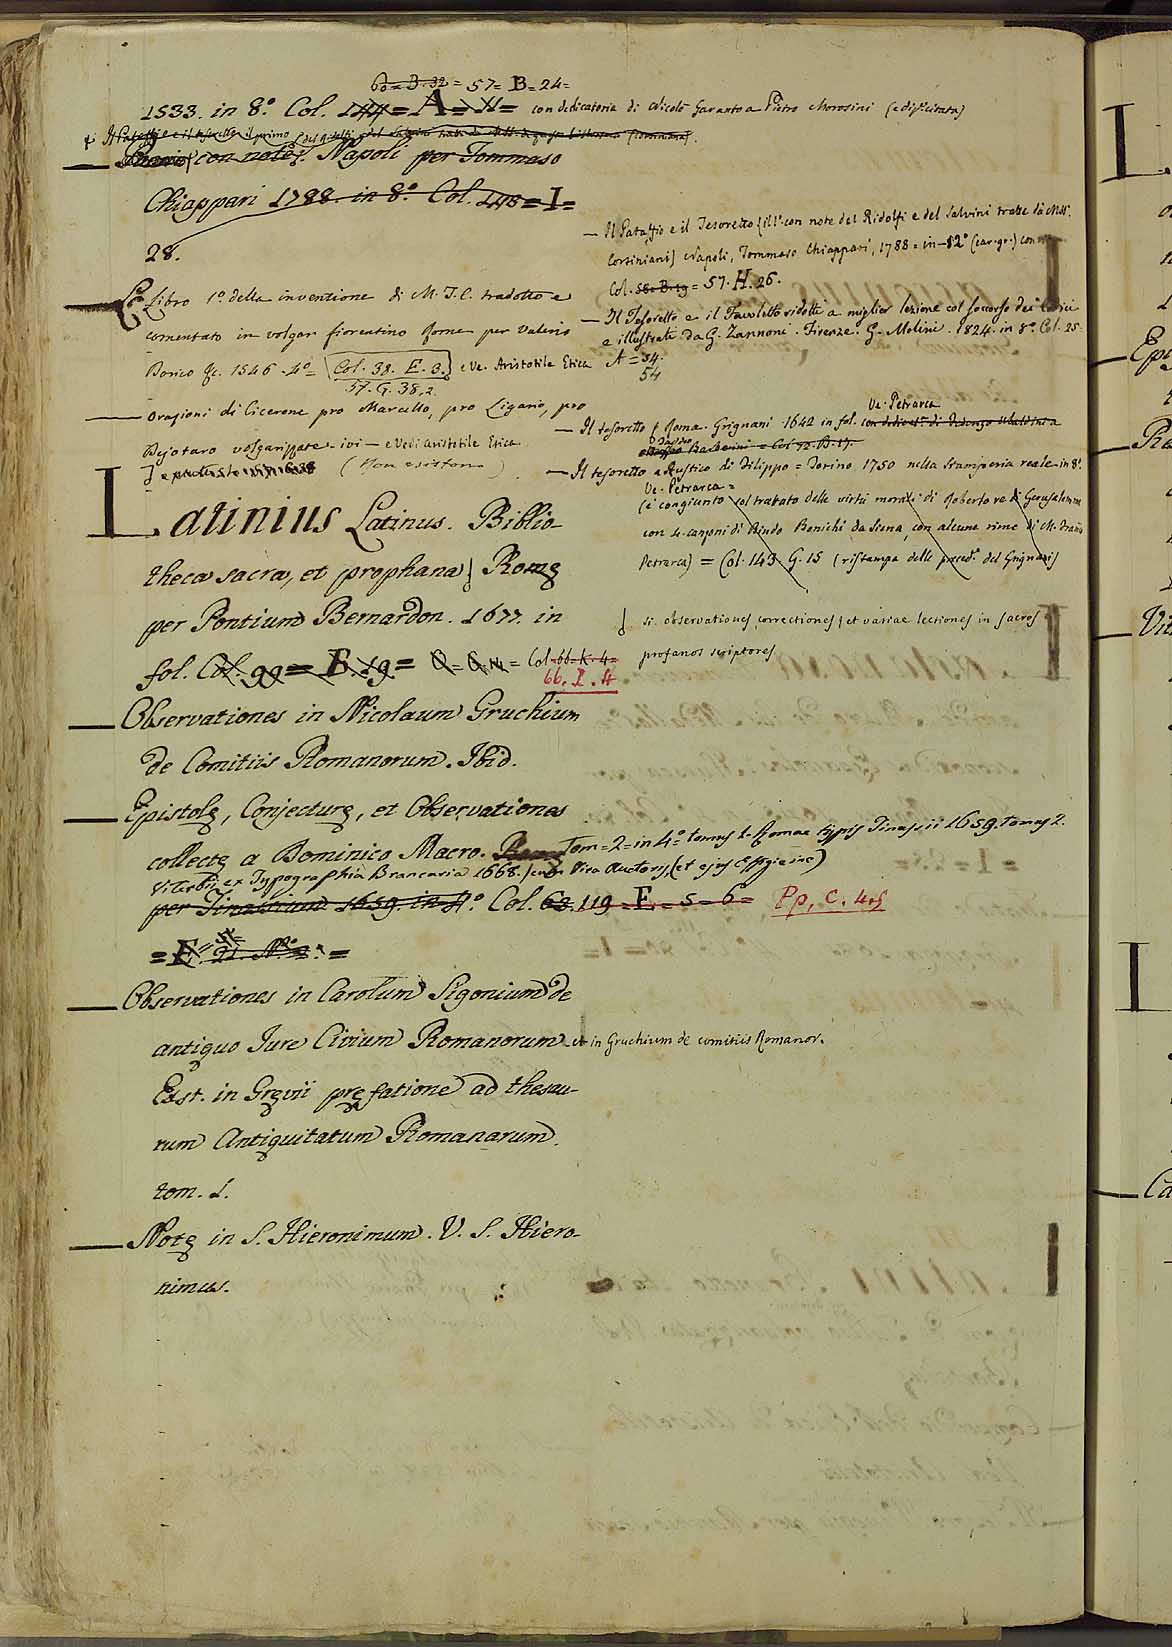 60=B.32 = 57= B=24=
1533. in 8.° Col. 144= A= 11= con dedicatoria di Nicolò Garanto a Pietro Morosini (ediz. citata)
Il Pataffio e il Tesoretto il primo
con note}. Napoli per Tommaso
Chiappari 1788. in 8.° Col. 148=I=
28.
Libro 1.° della inventione di M. T. C. tradotto e
comentato in volgar fiorentino Rome per Valerio
Dorico &c. 1546. 4.°= Col. 38. E. 3. e Ve. Aristotile Etica
57. G. 38,2.
Orazioni di Cicerone pro Marcello, pro Ligario, pro
Dejotaro volgarizzate. ivi — e Vedi Aristotile Etica
(Non esistono)
Latinius Latinus. Biblio-
theca sacra, et prophana} Romę
per Pontium Bernardon. 1677. in
fol. Col. 99= F. 19= Col. 66. K. 4=
66. I. 4
Observationes in Nicolaum Gruchium
de Comitiis Romanorum. Ibid.
Epistolę, Conjecturę, et Observationes
collectę a Dominico Macro. Tom=2=in 4.° tomus 1. Romae typis Tinassii 1659. tomus 2.
Viterbii ex Typographia Brancaria 1668. (cum Vita Auctoris, (et ejus Effigie inc)
per Tinassium 1659. in 4.° Col. 63. 119=E=5=6= Pp, C. 4.5
= F. 21. N.° 2. =
Observationes in Carolum Sigonium de
antiquo Jure Civium Romanorum et in Gruchium de comitiis Romanor.
Exst. in Gręvii pręfatione ad thesau-
rum Antiquitatum Romanarum.
tom. 1.
Notę in S. Hieronimum. V. S. Hiero-
nimus.
— Il Pataffio e il Tesoretto {ill. con note del Ridolfi e del Salvini tratte da Mss.
Corsiniani} Napoli, Tommaso Chiappari, 1788= in-12.° (car. gr.) con
Col. 58. B. 19= 57. H. 26.
— Il Tesoretto e il Favoletto ridotti a miglior lezione col soccorso dei Codici
e illustrati da G. Zannoni. Firenze. G. Molini. 1824. in 8.° Col. 25.
A = 34.
54
Ve. Petrarca
— Il tesoretto { Roma. Grignani 1642 in fol. con dedicat.e di Federigo Ubaldini a
Barberini = Col 72. B. 17.
— Il tesoretto a Rustico di Filippo = Torino, 1750 nella Stamperia reale in 8.°
Ve. Petrarca =
(è congiunto col trattato delle virtù morali di Roberto re di Gerusalemme
con 4. canzoni di Bindo Bonichi da Siena, con alcune rime di M. Franc.
Petrarca) = Col. 143. G. 15 (ristampa della preced. del Grignani)
} si. observationes, correctiones, et variae lectiones in sacros
profanos scriptores